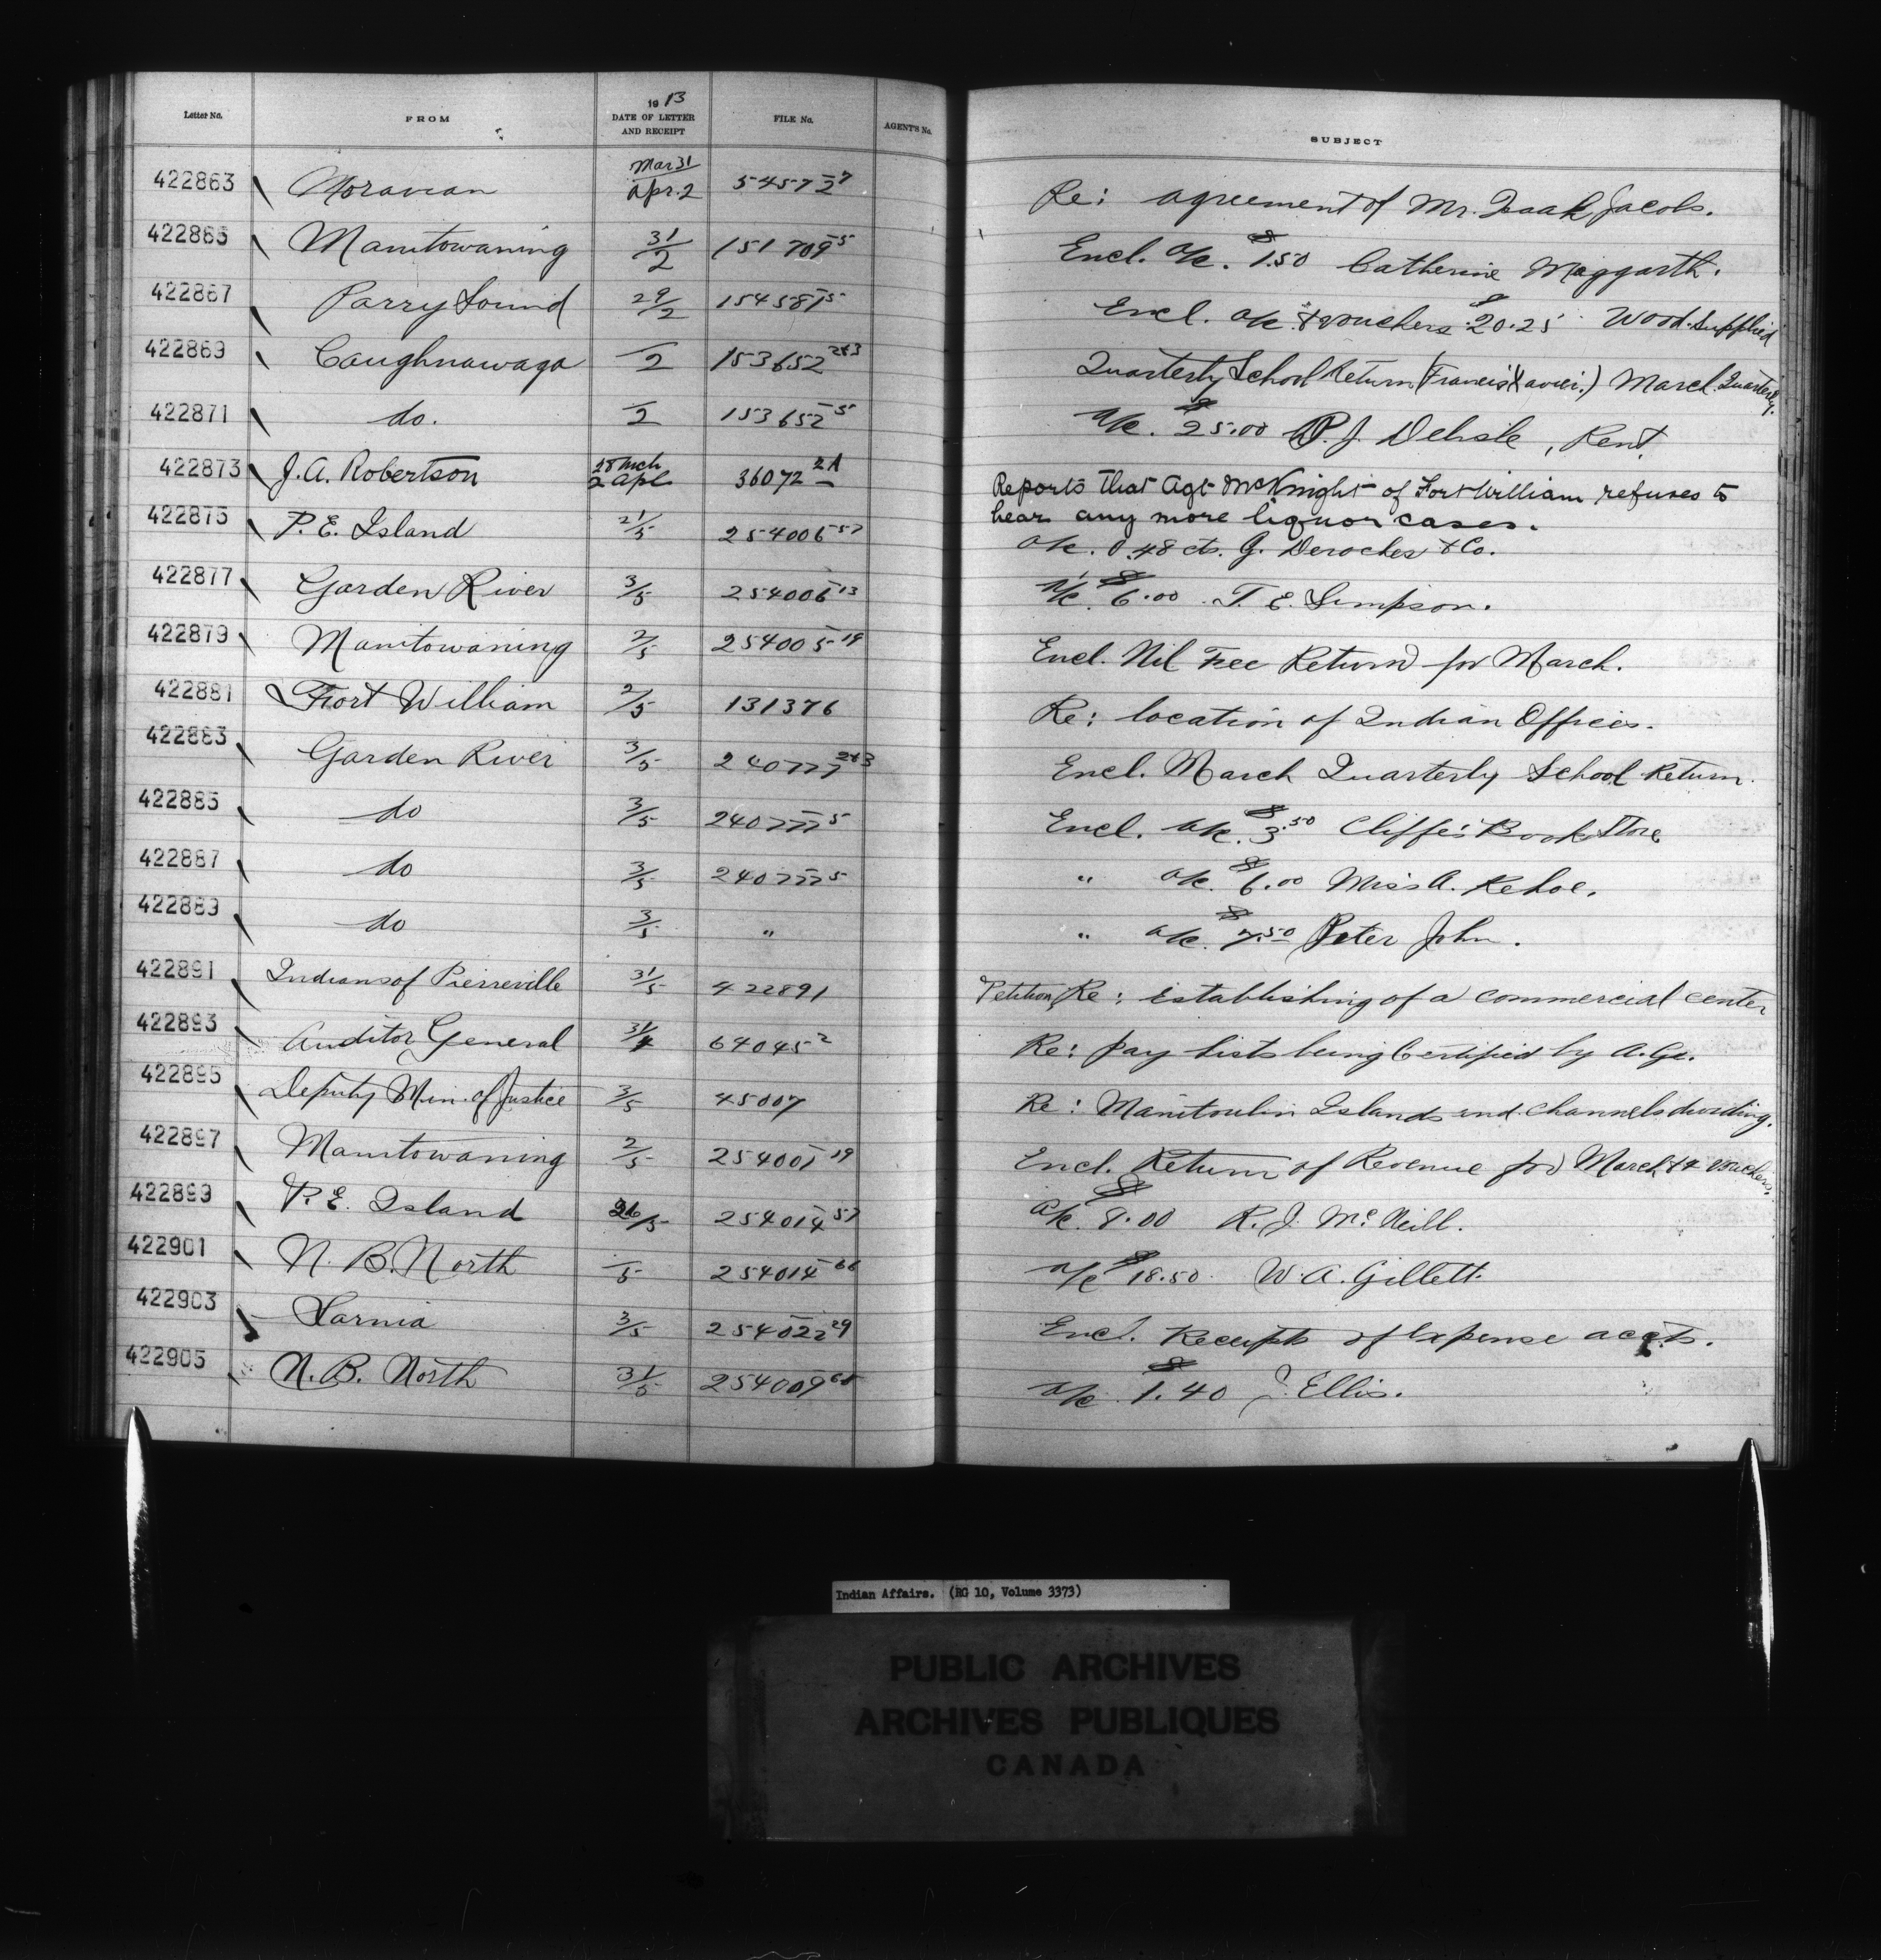 Letter No. FROM 1913 DATE OF LETTER AND RECEIPT FILE No. AGENT'S No. SUBJECT
422863 Moravian Mar 31 / Apr. 2 54572-7 Re: agreement of Mr. Isaak Jacobs.
422865 Manitowaning 31/2 151709-5 Encl. a/c. $1.50 Catherine Maggarth.
422867 Parry Sound 29/2 154581-5 Encl. a/c. & vouchers $20.25 Wood supplied
422869 Caughnawaga —/2 153652-2&3 Quarterly School Return (Francis Xavier.) March Quarterly.
422871 do. —/2 153652-5 a/c. $25.00 P. J. Delisle, Rent.
422873 J. A. Robertson 28 Mch / 2 Apl 36072-2A Reports that Agt McKnight of Fort William refuses to
hear any more liquor cases.
422875 P. E. Island 21/5 254006-57 a/c. 0.48 cts. G. Deroches & Co.
422877 Garden River 3/5 254006-13 a/c. $6.00 T. E. Simpson.
422879 Manitowaning 2/5 254005-19 Encl. Nil Fee Return for March.
422881 Fort William 2/5 131376 Re: location of Indian Offices.
422883 Garden River 3/5 240777-2&3 Encl. March Quarterly School Return.
422885 do 3/5 240777-5 Encl. a/c. $3.50 Cliffe's Book Store
422887 do 3/5 240777-5 " a/c. $6.00 Miss A. Kehoe.
422889 do 3/5 " " a/c. $7.50 Peter John.
422891 Indians of Pierreville 31/5 422891 Petition, Re: establishing of a commercial center
422893 Auditor General 31/4 64045-2 Re: pay lists being Certified by A.G.
422895 Deputy Min. of Justice 3/5 45007 Re: Manitoulin Islands and channels dividing.
422897 Manitowaning 2/5 254001-19 Encl. Return of Revenue for March & 4 vouchers.
422899 P. E. Island 26/5 254014-57 a/c. $8.00 R. J. McNeill.
422901 N. B. North —/5 254014-66 a/c $18.50 W. A. Gillett.
422903 Sarnia 3/5 254022-29 Encl. Receipts of Expense accts.
422905 N. B. North 31/5 254009 a/c $1.40 J. Ellis.
Indian Affairs. (RG 10, Volume 3373)
PUBLIC ARCHIVES
ARCHIVES PUBLIQUES
CANADA